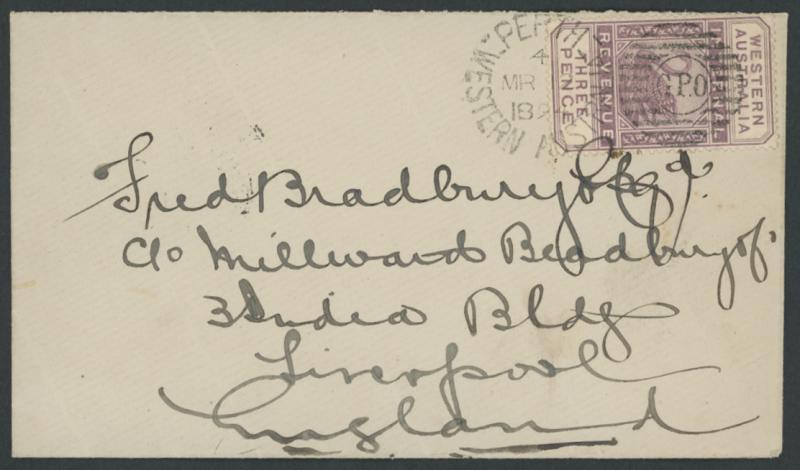 PERTH
4
MR
189
WESTERN AUS
WESTERN
AUSTRALIA
INTERNAL
G.P.O
REVENUE
THREE
PENCE
Fred Bradbury Esqr.
c/o Millward Bradbury &
3 India Bldg
Liverpool
England